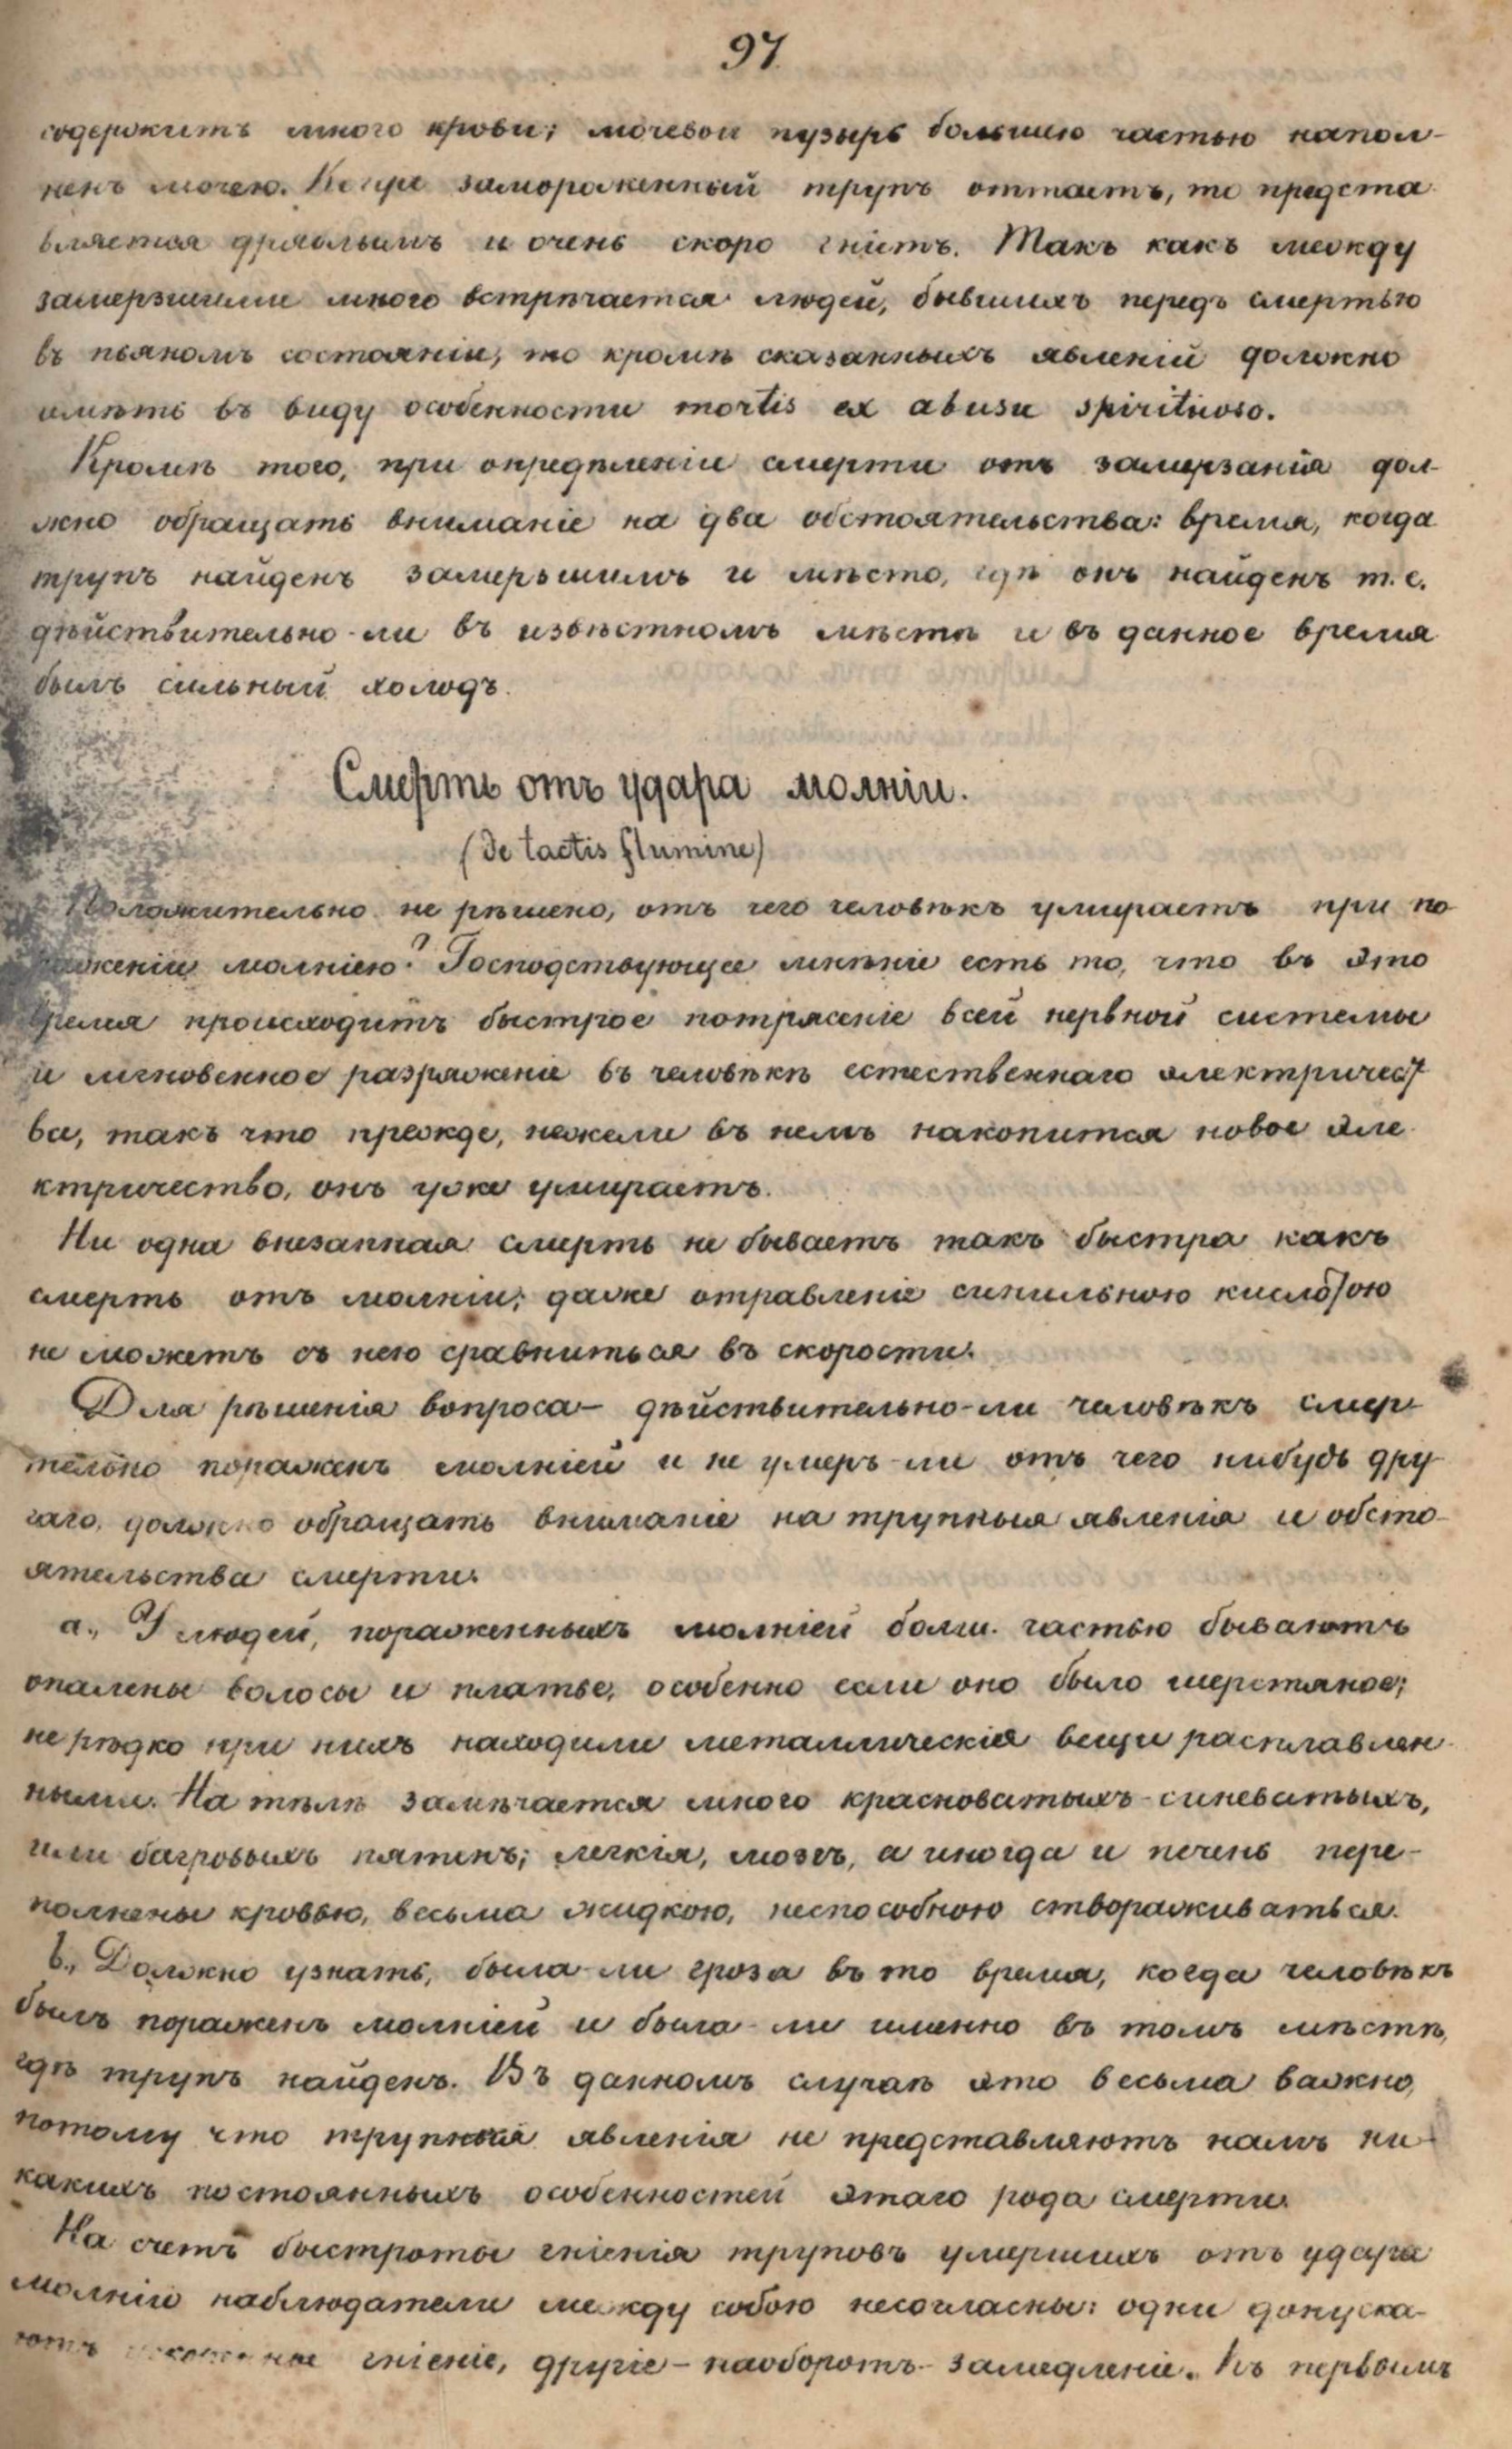 97
содержитъ много крови; мочевой пузырь большею частью напол-
ненъ мочею. Когда замороженный трупъ оттаетъ, то предста
вляется дряблымъ и очень скоро гніетъ. Такъ какъ между
замерзшими много встрѣчается людей, бывшихъ передъ смертью
въ пьяномъ состояніи, то кромѣ сказанныхъ явленій должно
имѣть въ виду особенности mortis ex abusu spirituoso.
Кромѣ того, при опредѣленіи смерти отъ замерзанія дол-
жно обращать вниманіе на два обстоятельства: время, когда
трупъ найденъ замерзшимъ и мѣсто, гдѣ онъ найденъ т.е.
дѣйствительно-ли въ извѣстномъ мѣстѣ и въ данное время
былъ сильный холодъ.
Смерть отъ удара молніи.
(de tactis flumine)
Положительно не рѣшено, отъ чего человѣкъ умираетъ при по-
раженіи молніею? Господствующее мнѣніе есть то, что въ это
время происходитъ быстрое потрясеніе всей нервной системы
и мгновенное разряженіе въ человѣкѣ естественнаго электричест
ва, такъ что прежде, нежели въ немъ накопится новое эле
ктричество, онъ уже умираетъ.
Ни одна внезапная смерть не бываетъ такъ быстра какъ
смерть отъ молніи; даже отравленіе синильною кислотою
не можетъ съ нею сравниться въ скорости.
Для рѣшенія вопроса – дѣйствительно-ли человѣкъ смер-
тельно пораженъ молніей и не умеръ-ли отъ чего нибудь дру-
гаго, должно обращать вниманіе на трупныя явленія и обсто-
ятельства смерти.
a., У людей, пораженныхъ молніей больш. частью бываютъ
опалены волосы и платье, особенно если оно было шерстяное;
не рѣдко при нихъ находили металлическія вещи расплавлен-
ными. На тѣлѣ замѣчается много красноватыхъ-синеватыхъ,
или багровыхъ пятенъ; легкія, мозгъ, а иногда и печень пере-
полнены кровью, весьма жидкою, неспособною створаживаться.
b., Должно узнать, была-ли гроза въ то время, когда человѣкъ
былъ пораженъ молніей и была-ли именно въ томъ мѣстѣ,
гдѣ трупъ найденъ. Въ данномъ случаѣ это весьма важно,
потому что трупныя явленія не представляютъ намъ ни-
какихъ постоянныхъ особенностей этаго рода смерти.
На счетъ быстроты гніенія труповъ умершихъ отъ удара
молніи наблюдатели между собою несогласны: одни допуска-
ютъ гніеніе, другіе – наоборотъ – замедленіе. Къ первымъ